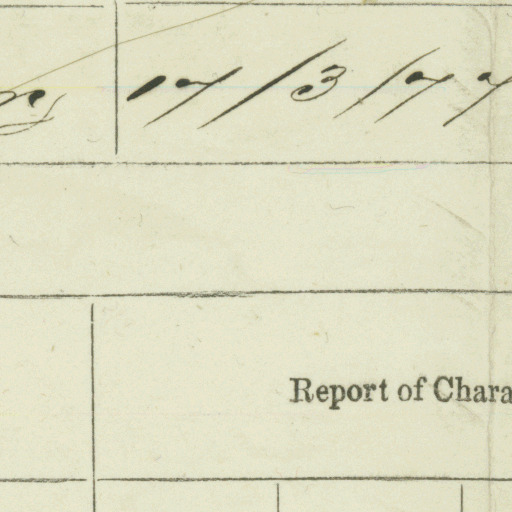 17/3/77
Report of Chara